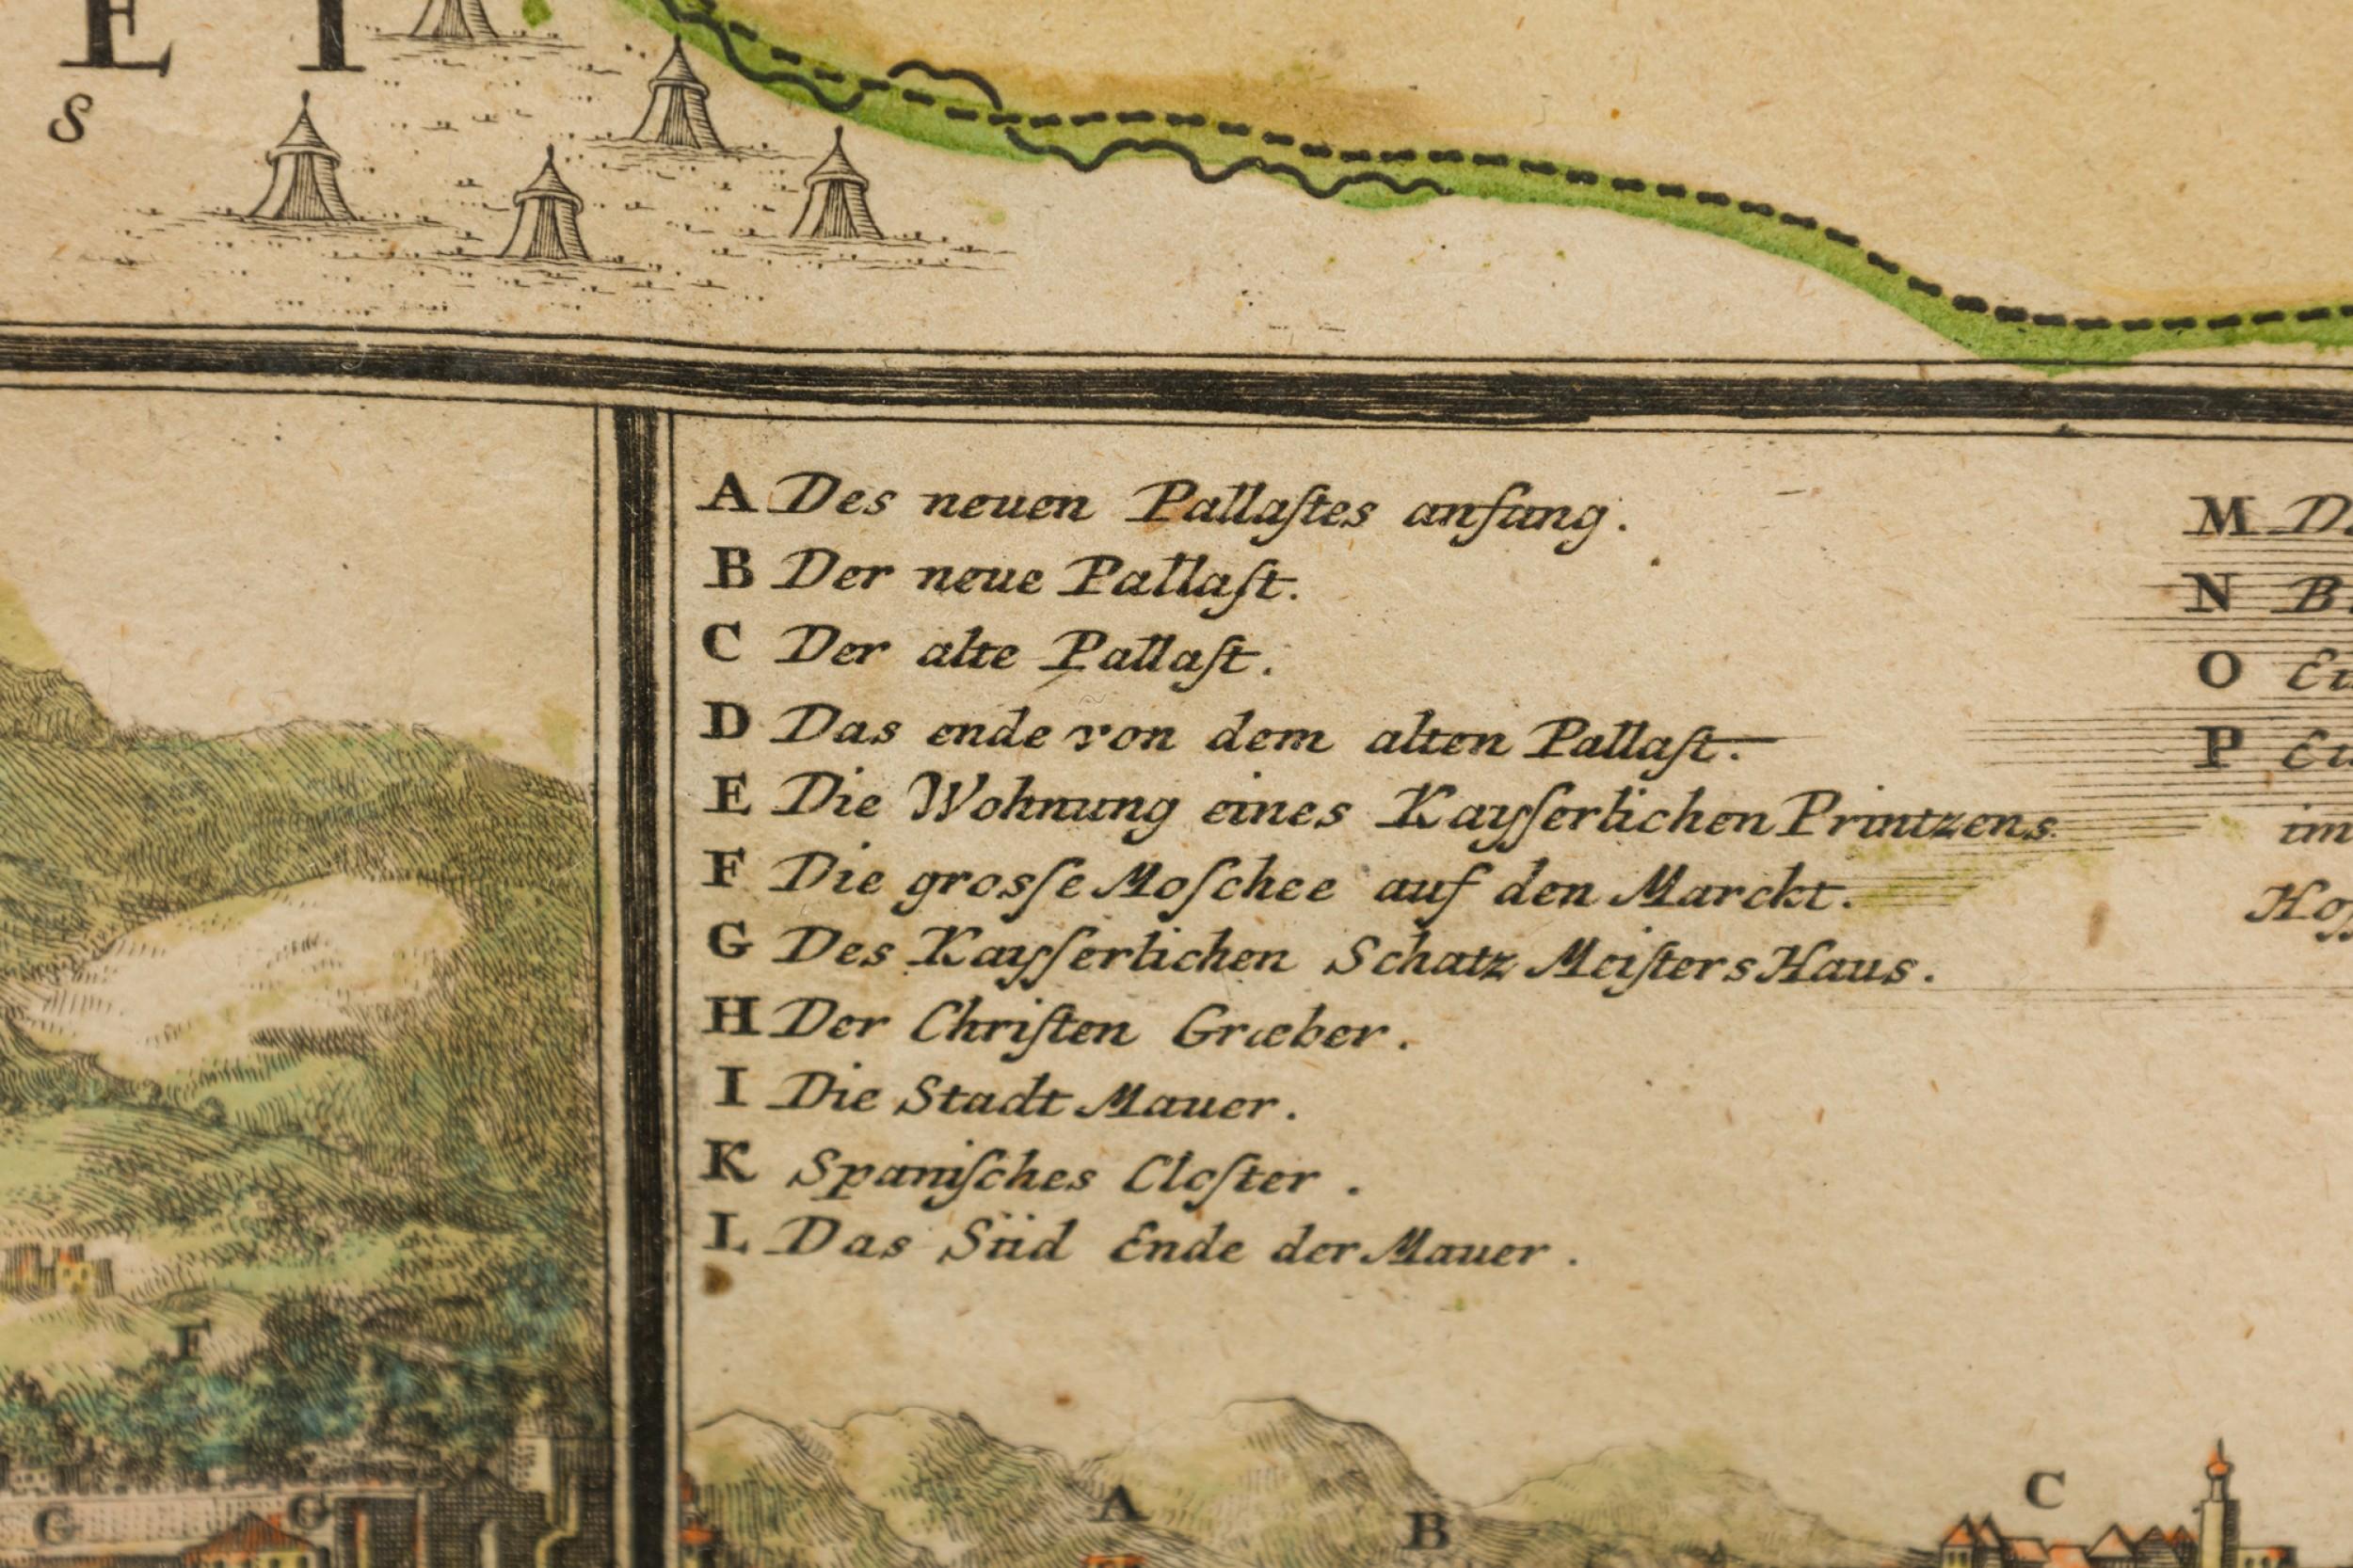 E I
S
A Des neuen Pallaſtes anfang.
B Der neue Pallaſt.
C Der alte Pallaſt.
D Das ende von dem alten Pallaſt.
E Die Wohnung eines Kayſſerlichen Printzens
F Die grosſe Moſchee auf den Marckt.
G Des Kayſſerlichen Schatz Meiſters Haus.
H Der Chriſten Græber.
I Die Stadt Mauer.
K Spaniſches Cloſter.
L Das Süd Ende der Mauer.
M
N
O
P
im
F
G G
A B C